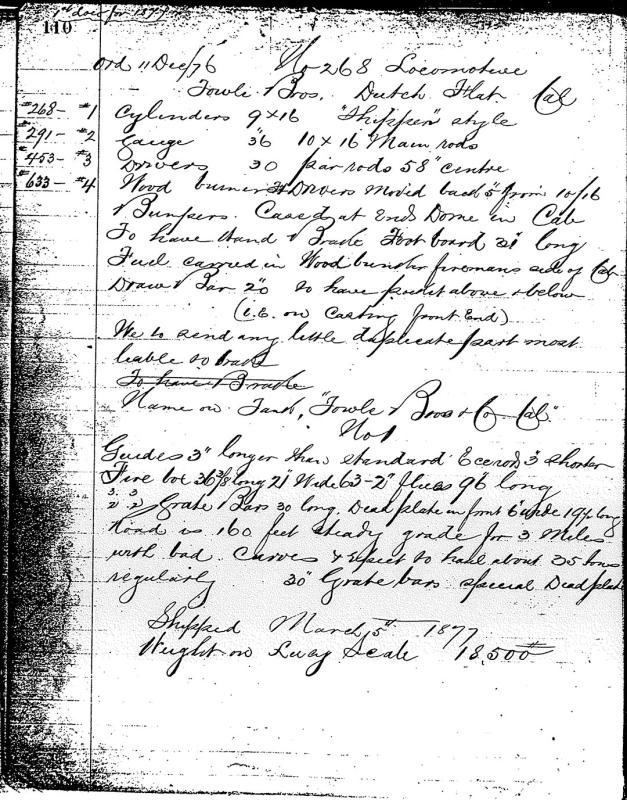 for 1877
110
Ord 11 Dec/76 No 268 Locomotive
Towle Bros. Dutch Flat Cal
#268- #1 Cylinders 9 x 16 "Skipper" style
#291- #2 Gauge 36 10 x 16 Main rods
#453- #3 Drivers 30 par rods 58" centre
#633- #4 Wood burner Drivers moved back 5" from 10/16
& Bumpers. Cased at Ends Dome in Cab
To have Hand Brake Foot board 31" long
Fuel carried in Wood bunker firemans side of Cab
Draw Bar 20" to have point above & below
(L.E. on Casting front End)
We to send any little duplicate part most
liable to break
To have Brake
Name on Tank, "Towle Bros & Co Cal."
No 1
Guides 3" longer than standard Ecerods 3" shorter
Fire box 36 3/8 long 21" Wide 63-2" flues 96 long
Grate Bars 30 long. Dead plate in front 6" wide 19 1/4 long
Road is 160 feet steady grade for 3 Miles
with bad Curves & expect to haul about 35 tons
regularly 30" Grate bars special Dead plate
Shipped March 5th 1877
Weight on Scale 18,500#